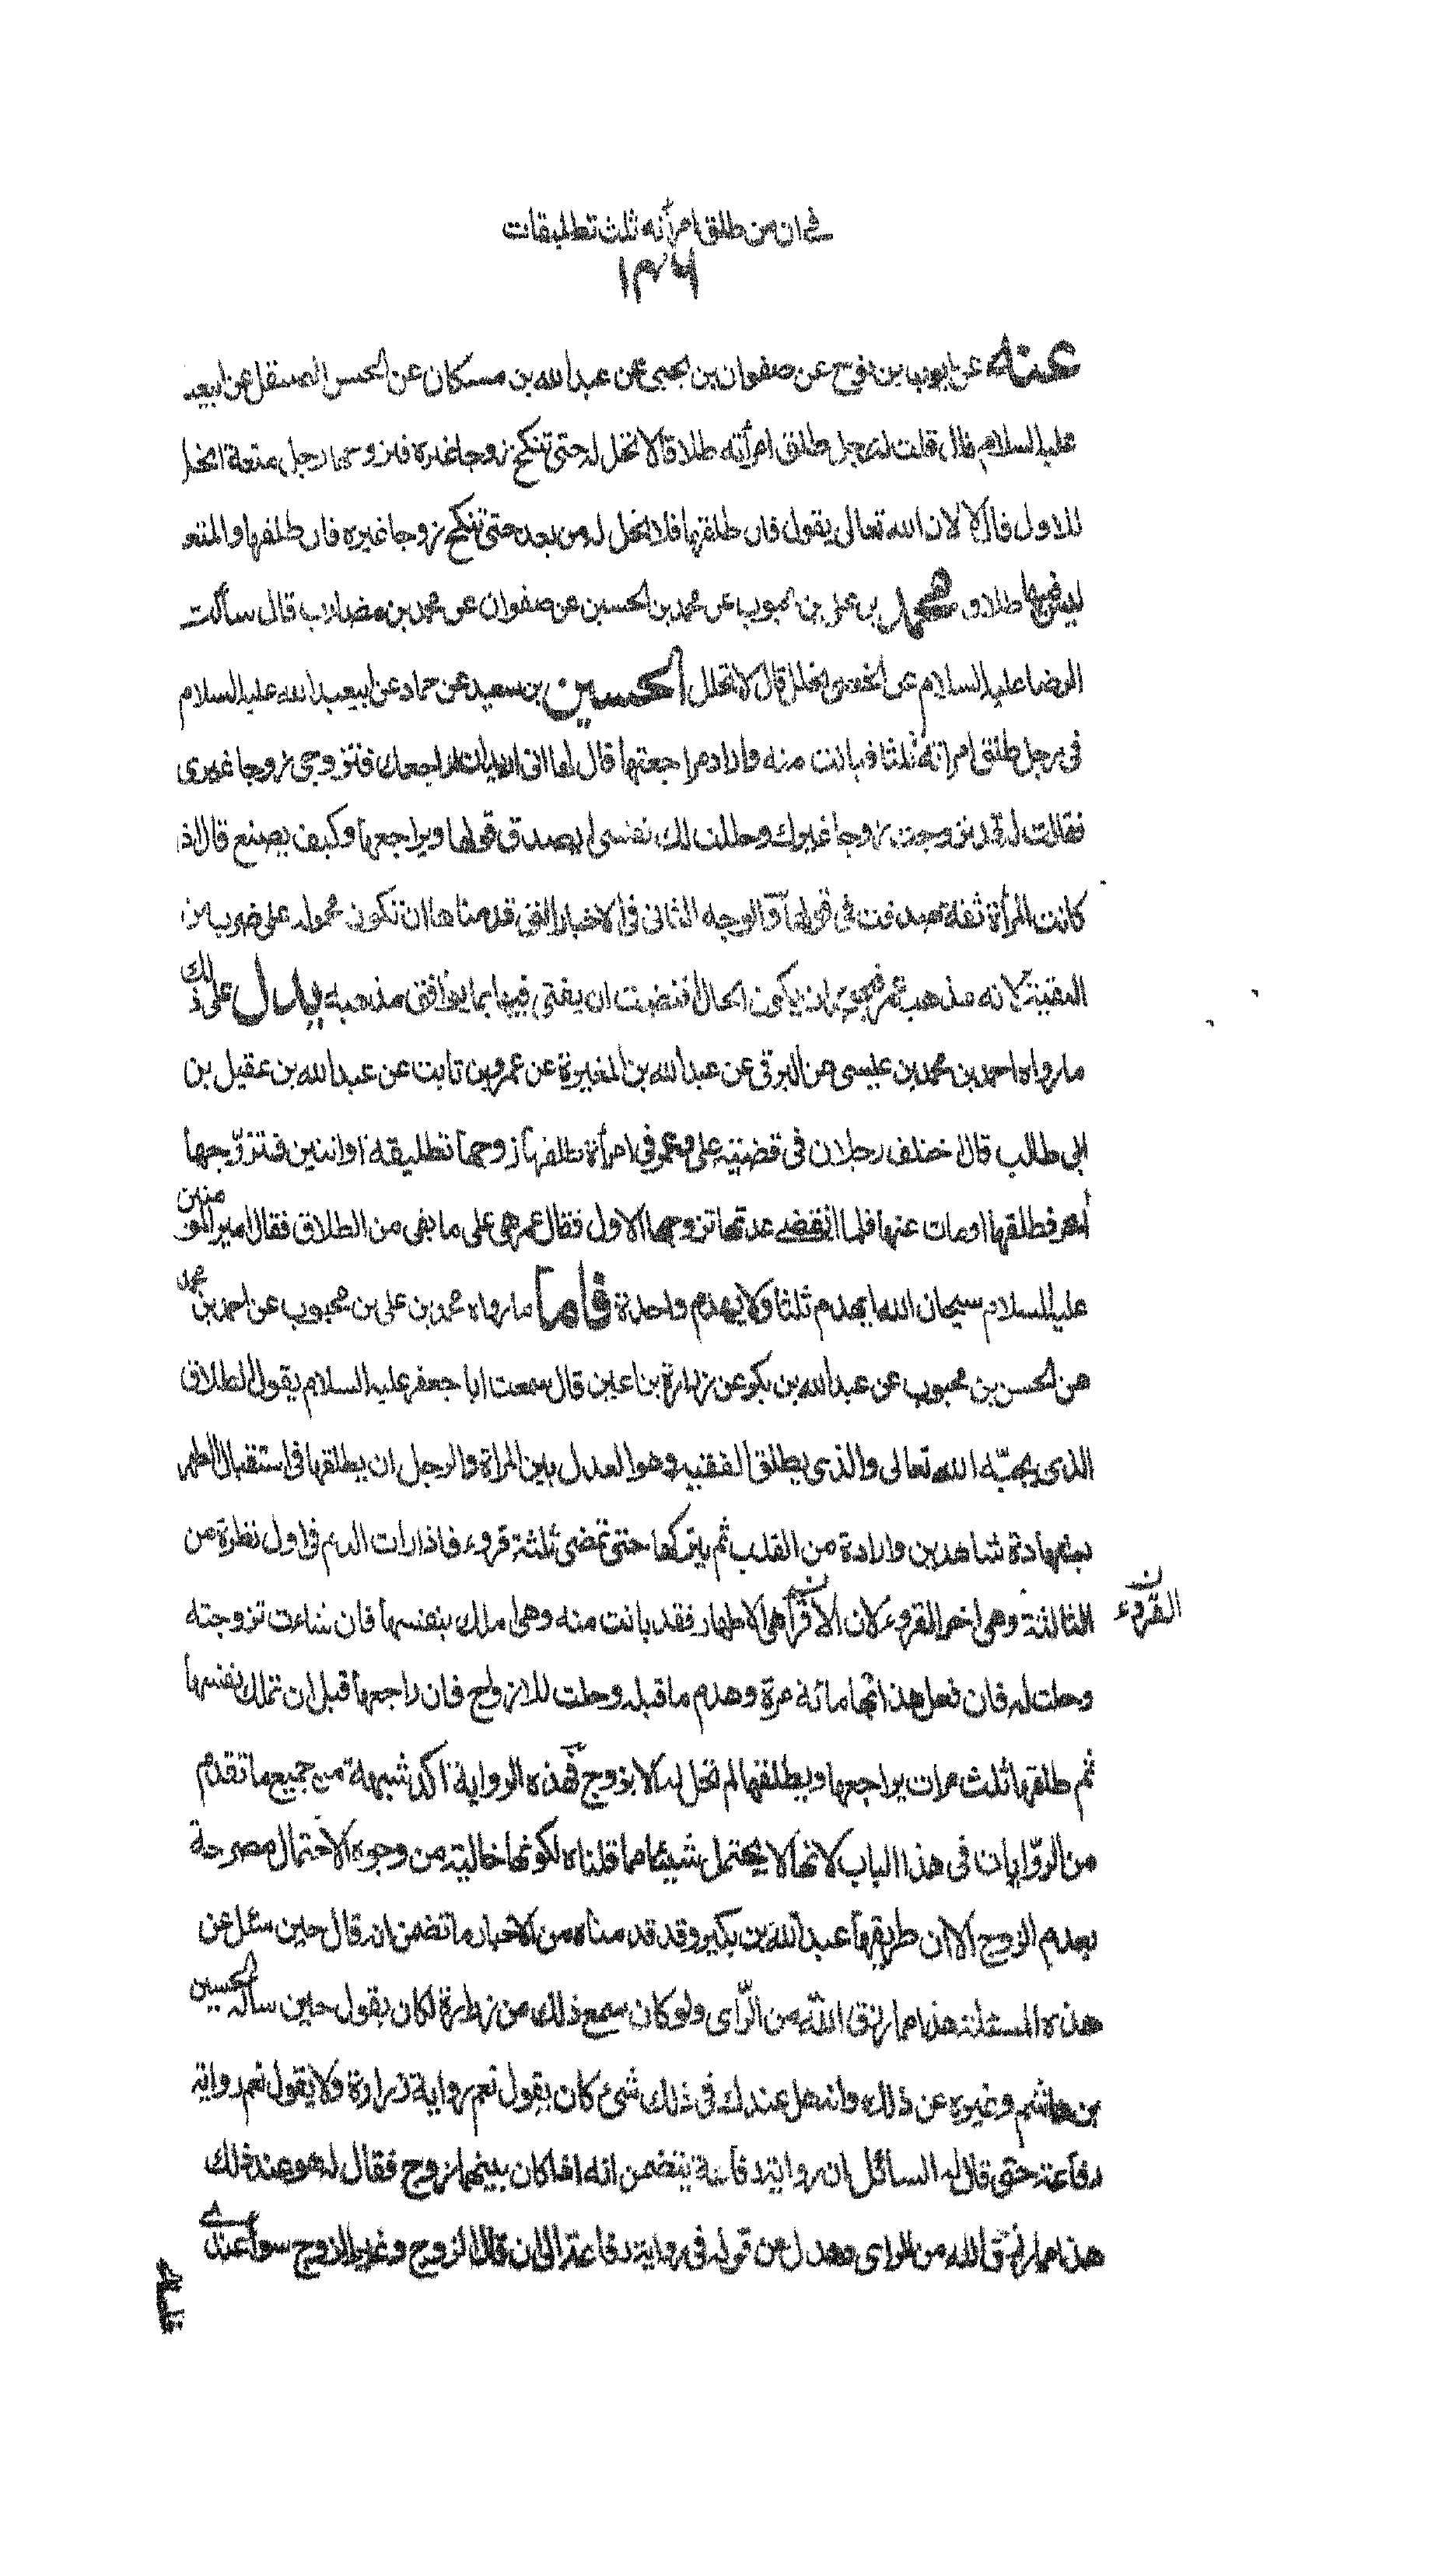 في ان من طلق امرأته ثلث تطليقات
١٣٦
عنه عن ايوب بن نوح عن صفوان بن يحيى عن عبدالله بن مسكان عن الحسن الصيقل عن ابيعبد
عليه السلام قال قلت له رجل طلق امرأته طلاقا لا تحل له حتى تنكح زوجا غيره فتزوجها رجل متعة اتحل
للاول قال لا لان الله تعالى يقول فان طلقها فلا تحل له من بعد حتى تنكح زوجا غيره فان طلقها والمتعة
ليس فيها طلاق محمد بن على بن محبوب عن محمد بن الحسين عن صفوان عن محمد بن مضارب قال سألت
الرضا عليه السلام عن الخصى يحلل قال لا تحلل الحسين بن سعيد عن حماد عن ابيعبد الله عليه السلام
في رجل طلق امرأته ثلثا فبانت منه واراد مراجعتها قال لها انى اريد ان اراجعك فتزوجى زوجا غيرى
فقالت له قد تزوجت زوجا غيرك وحللت لك نفسى ايصدق قولها ويراجعها وكيف يصنع قال اذا
كانت المرأة ثقة صدقت في قولها والوجه الثانى في الاخبار التى قدمناها ان تكون محمولة على ضرب من
التقية لانه مذهب عمر فيجوز ان يكون الحال اقتضت ان يفتى فيها بما يوافق مذهبه يدل على ذلك
ما رواه احمد بن محمد بن عيسى عن البرقى عن عبدالله بن المغيرة عن عمرو بن ثابت عن عبدالله بن عقيل بن
ابى طالب قال اختلف رجلان في قضية على وعمر في امرأة طلقها زوجها تطليقة او اثنتين فتزوّجها
آخر فطلقها او مات عنها فلما انقضت عدتها تزوجها الاول فقال عمر هى على ما بقى من الطلاق فقال امير المؤمنين
عليه السلام سبحان الله ايهدم ثلثا ولا يهدم واحدة فاما ما رواه محمد بن على بن محبوب عن احمد بن محمد
عن الحسن بن محبوب عن عبدالله بن بكير عن زرارة بن اعين قال سمعت ابا جعفر عليه السلام يقول الطلاق
الذى يحبّه الله تعالى والذى يطلق الفقيه وهو العدل بين المرأة والرجل ان يطلقها في استقبال الطهر
بشهادة شاهدين وارادة من القلب ثم يتركها حتى تمضى ثلثة قروء فاذا رات الدم في اول قطرة من
الثالثة وهى اخر القروء لان الاقرآء هى الاطهار فقد بانت منه وهى املك بنفسها فان شاءت تزوجته
القُرْوء ن
وحلت له فان فعل هذا بها مائة مرة وهدم ما قبله وحلت للازواج فان راجعها قبل ان تملك نفسها
ثم طلقها ثلث مرات يراجعها ويطلقها لم تحل له الا بزوج فهذه الرواية آكد شبهة من جميع ما تقدم
من الروّايات في هذا الباب لانها لا يحتمل شيئا مما قلناه لكونها خالية من وجوه الاحتمال مصرحة
بعدم الزوج الا ان طريقها عبدالله بن بكير وقد قدمناه من الاخبار ما تضمن انه قال حين سئل عن
هذه المسئلة هذا مما رزق الله من الرّأى ولو كان سمع ذلك من زرارة لكان يقول حين سأله الحسين
بن هاشم وغيره عن ذلك وانه هل عندك في ذلك شئ كان يقول نعم رواية زرارة ولا يقول نعم رواية
رفاعة حتى قال له السائل ان رواية رفاعة يتضمن انه اذا كان بينهما زوج فقال له هو عند ذلك
هذا مما رزق الله من الراى وعدل عن قوله في رواية رفاعة الى ان قال الزوج وغير الزوج سواء عندى